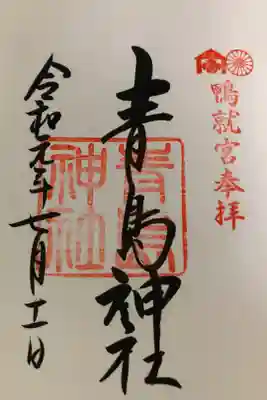 鴨就宮奉拝
青島神社
青島
神社
令和元年七月十一日